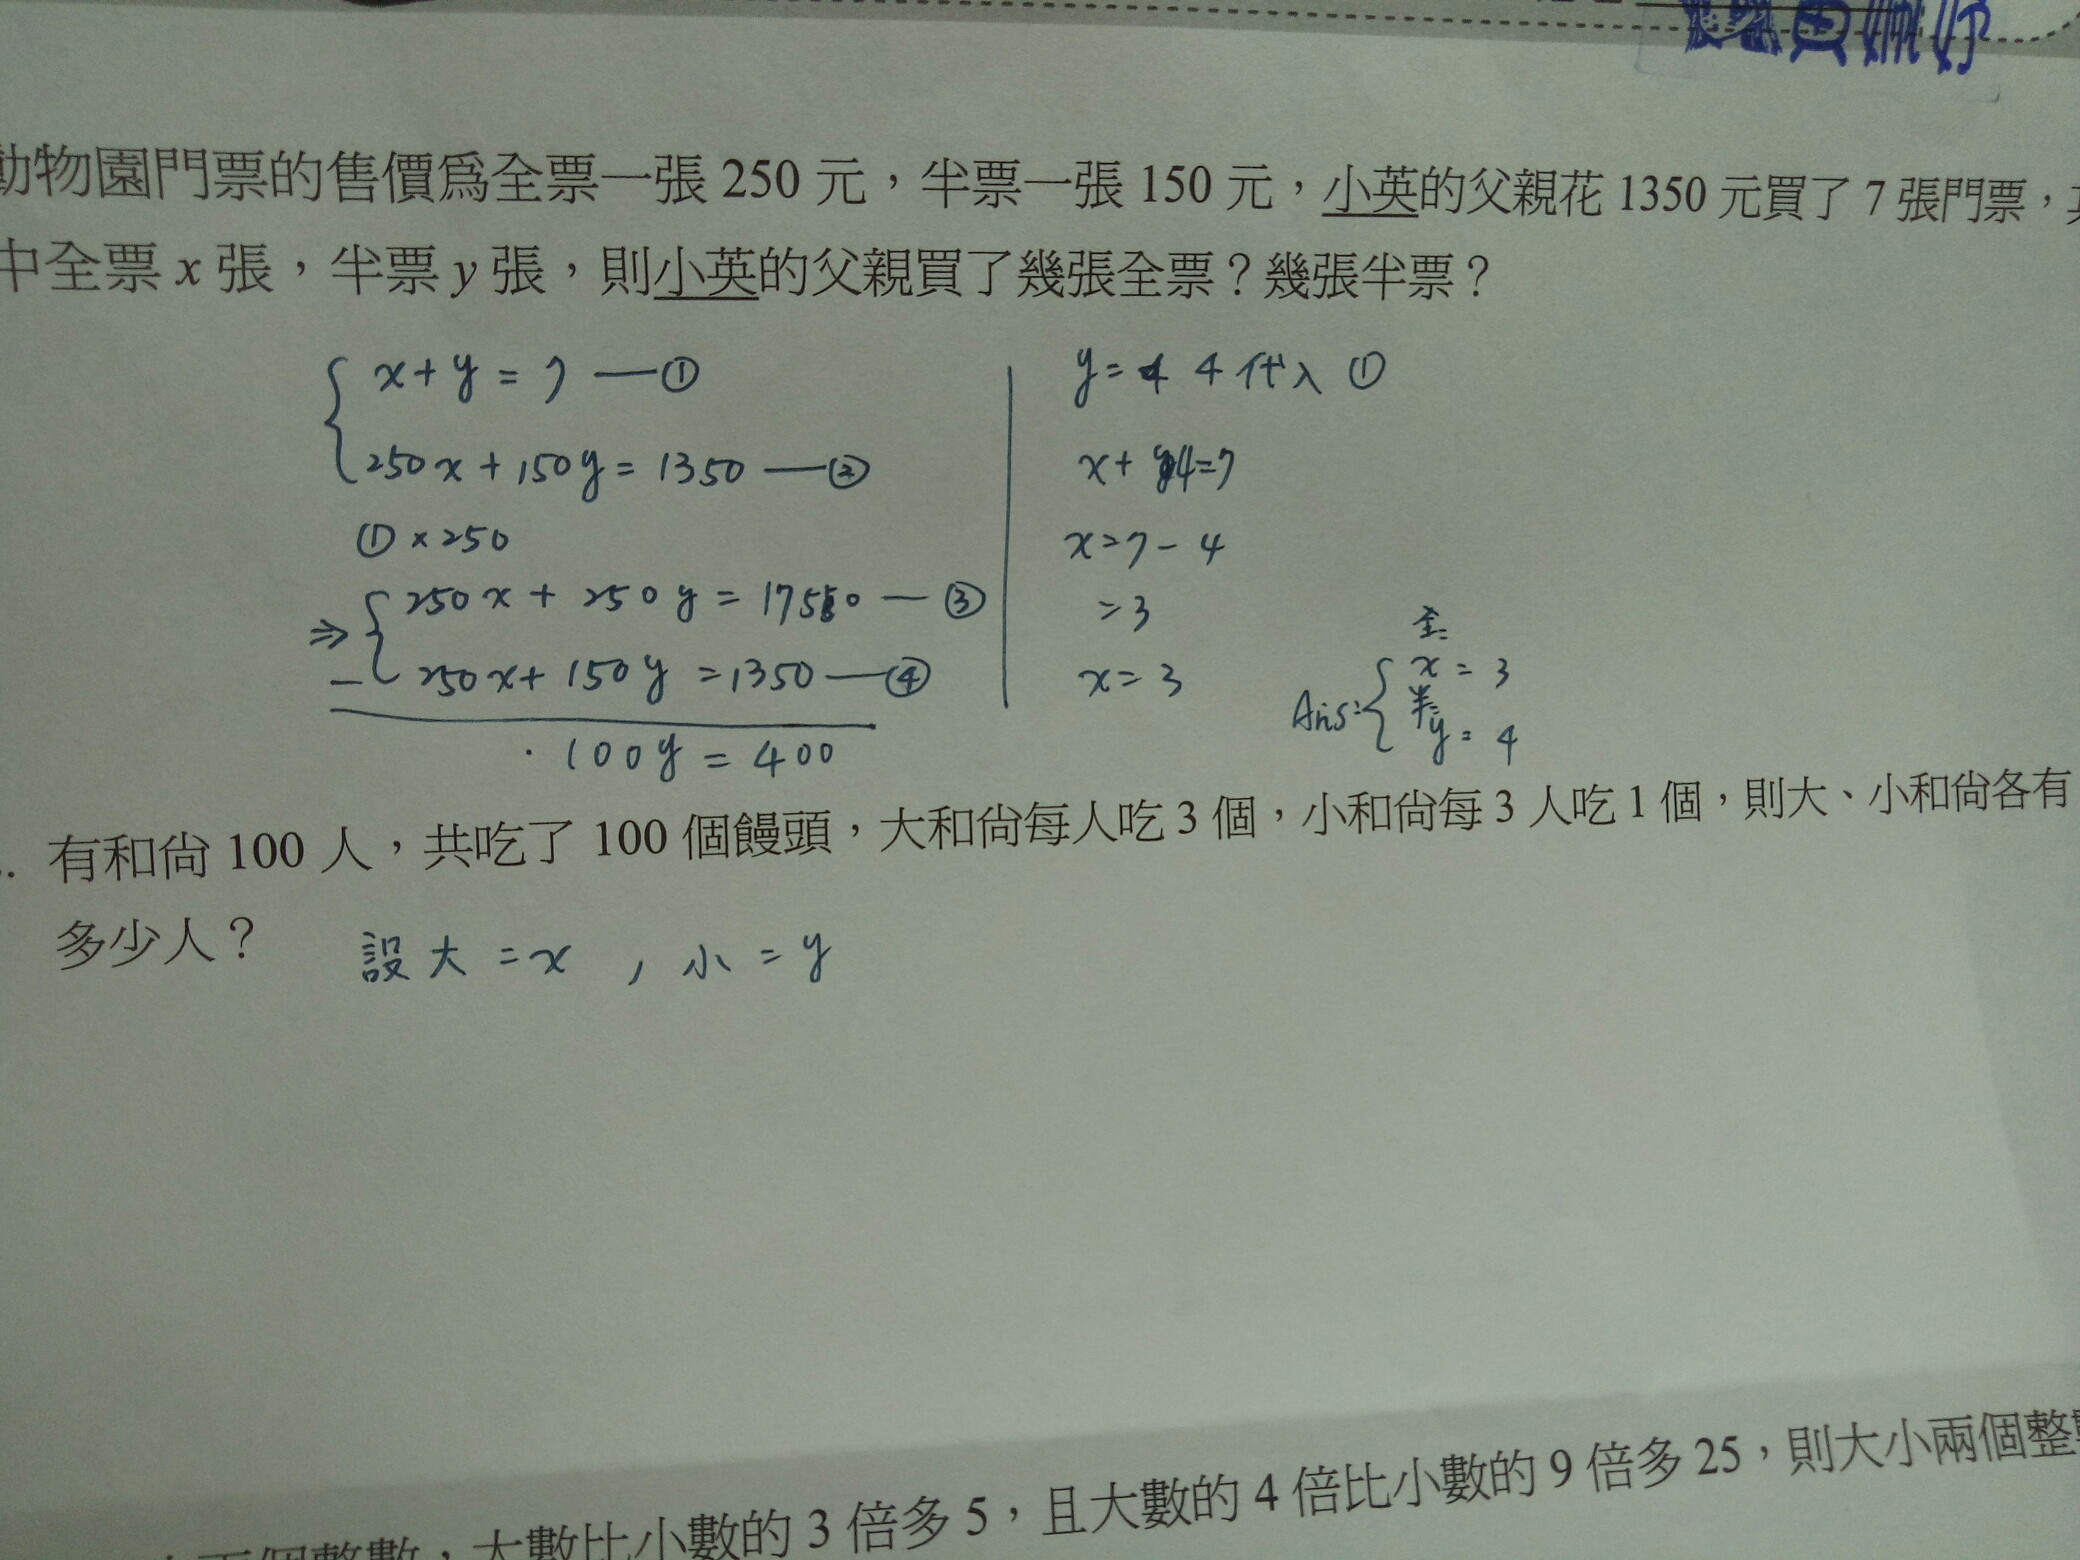 動物園門票的售價爲全票一張 250 元，半票一張 150 元，小英的父親花 1350 元買了 7 張門票，其
中全票 x 張，半票 y 張，則小英的父親買了幾張全票？幾張半票？
x + y = 7 —①
250x + 150y = 1350 —②
① × 250
⇒ 250x + 250y = 1750 —③
− 250x + 150y = 1350 —④
100y = 400
y = 4 代入 ①
x + 4 = 7
x = 7 − 4
= 3
x = 3
全
Ans: x = 3
半
y = 4
有和尙 100 人，共吃了 100 個饅頭，大和尙每人吃 3 個，小和尙每 3 人吃 1 個，則大、小和尙各有
多少人？
設大 = x ，小 = y
兩個整數，大數比小數的 3 倍多 5，且大數的 4 倍比小數的 9 倍多 25，則大小兩個整數